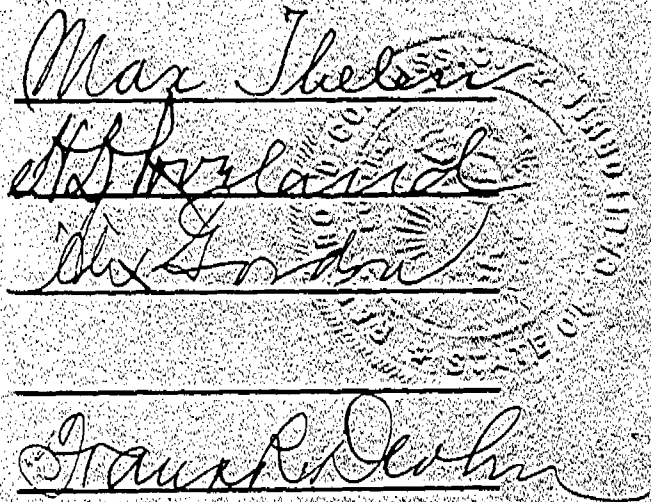 Max Thelen
H D Loveland
Alex Gordon
Frank R Devlin
STATE OF CALIF